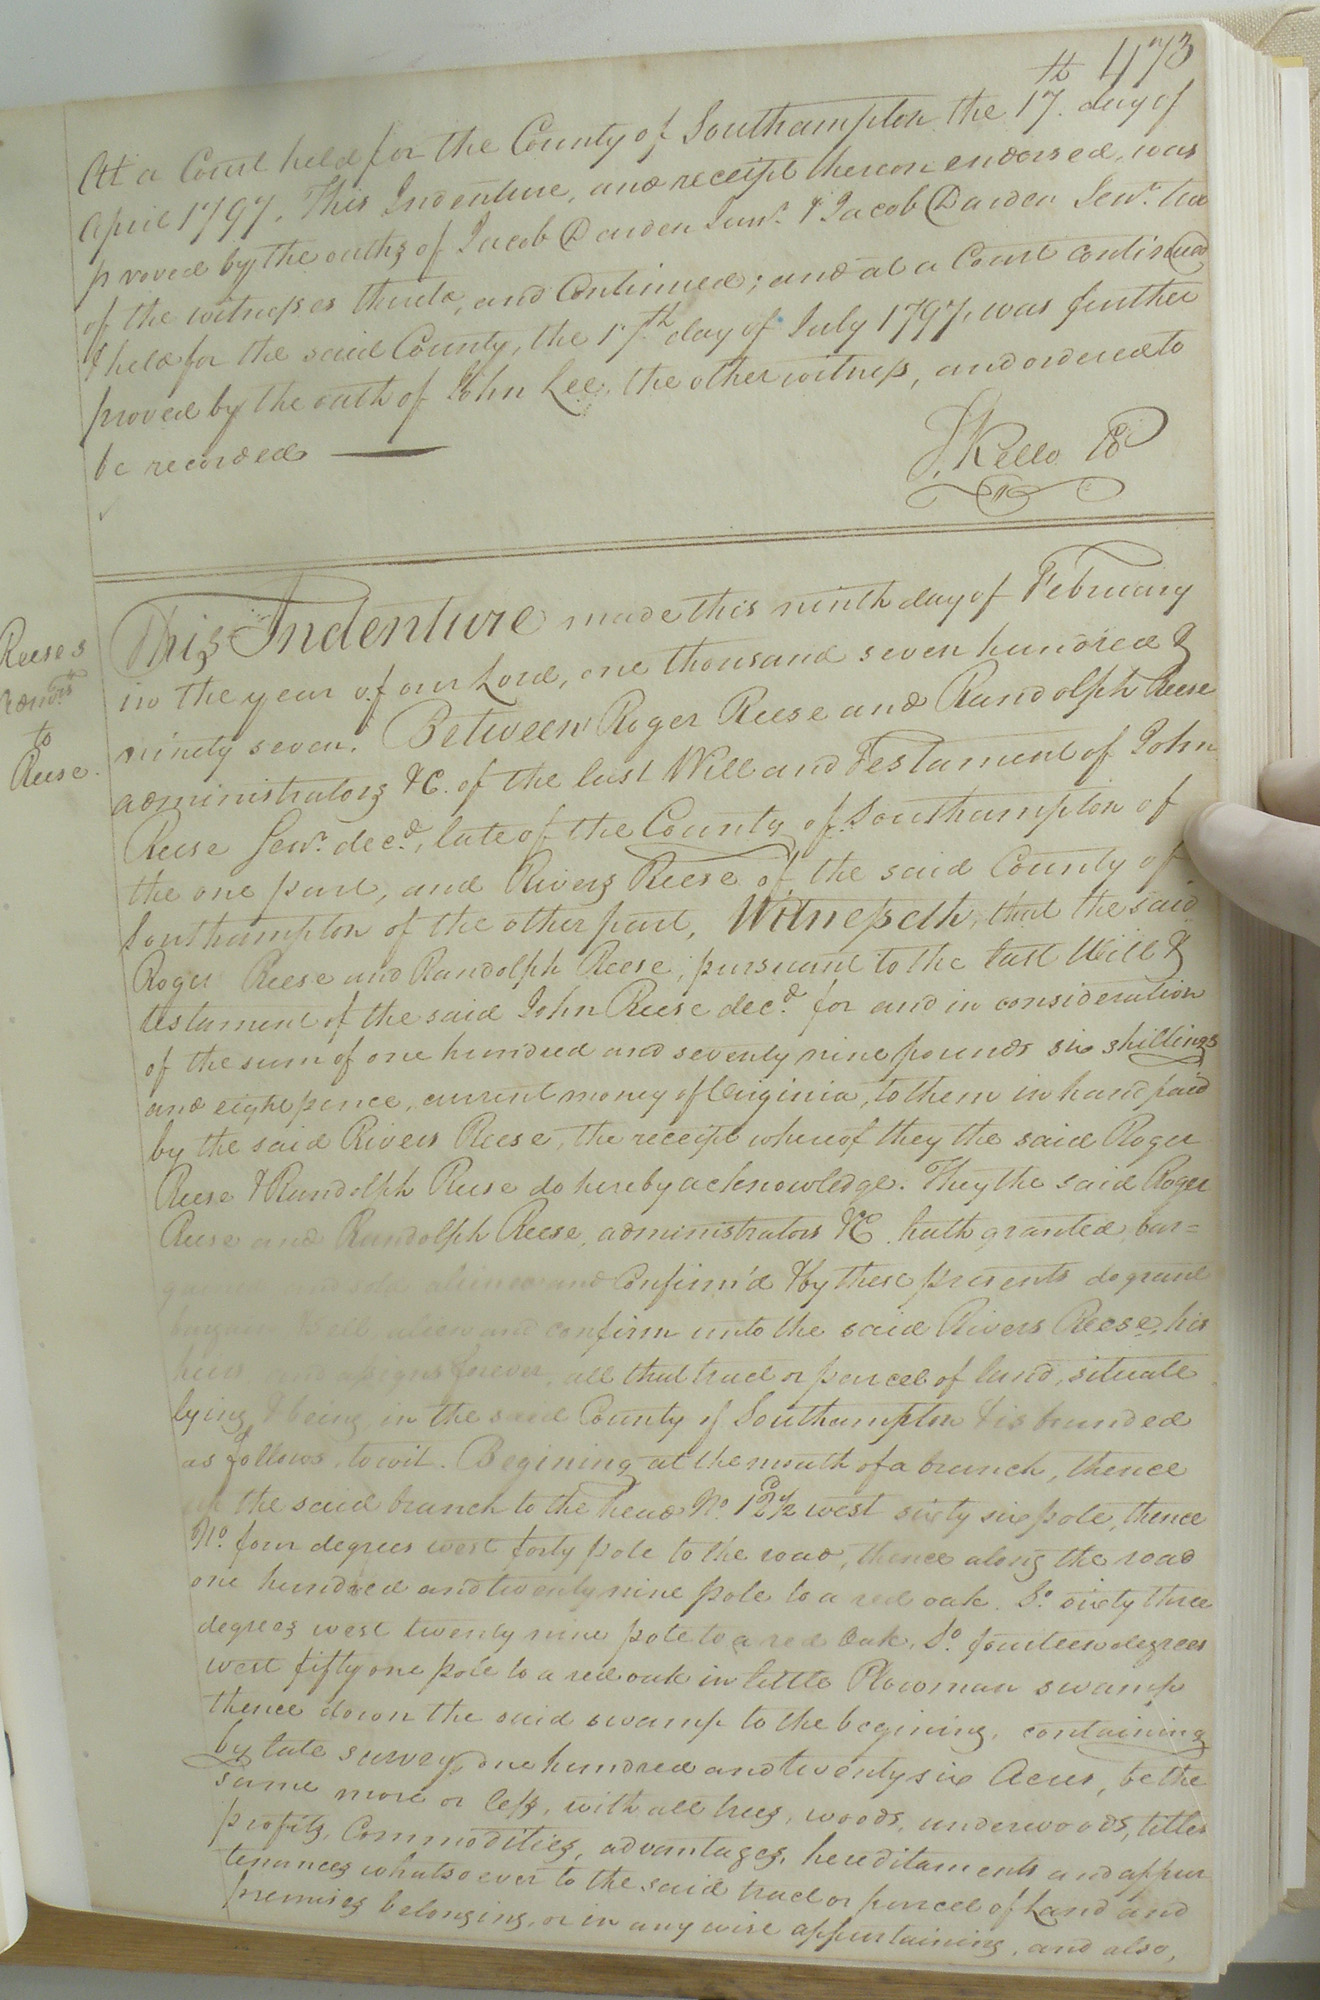 473
th
At a Court held for the County of Southampton the 17. day of
April 1797. This Indenture, and receipt thereon endorsed, was
proved by the oaths of Jacob Darden Junr. & Jacob Darden Senr. two
of the witnesses thereto, and Continued; and at a Court continued
& held for the said County, the 17th day of July 1797, was further
proved by the oath of John Lee, the other witness, and ordered to
be recorded
S. Kello
This Indenture made this ninth day of February
in the year of our Lord, one thousand seven hundred &
ninety seven. Between Roger Reese and Randolph Reese
administrators &C. of the last Will and Testament of John
Reese Senr. decd., late of the County of Southampton of
the one part, and Rivers Reese of the said County of
Southampton of the other part, Witnesseth, that the said
Roger Reese and Randolph Reese, pursuant to the last Will &
testament of the said John Reese decd. for and in consideration
of the sum of one hundred and seventy nine pounds six shillings
and eight pence, current money of Virginia, to them in hand paid
by the said Rivers Reese, the receipt whereof they the said Roger
Reese & Randolph Reese do hereby acknowledge. They the said Roger
Reese and Randolph Reese, administrators &C. hath granted, bar=
and sold aliened and Confirm'd & by these presents do grant
bargain & sell alien and confirm unto the said Rivers Reese, his
heirs and assigns forever, all that tract or parcel of land, situate
lying & being in the said County of Southampton & is bounded
as follows, to wit. Begining at the mouth of a branch, thence
the said branch to the head No. 12d ½ west sixty six pole, thence
No. four degrees west forty pole to the road, thence along the road
one hundred and twenty nine pole to a red oak. So. sixty three
degrees west twenty nine pole to a red Oak, So. fourteen degrees
west fifty one pole to a red oak in little Plowman swamp
thence down the said swamp to the begining, containing
by late survey one hundred and twenty six Acres, be the
same more or less, with all trees, woods, underwoods, titles
profits, Commodities, advantages, hereditaments and appur
tenances whatsoever to the said tract or parcel of Land and
premises belonging, or in any wise appurtaining, and also,
Reeses
to
Reese.